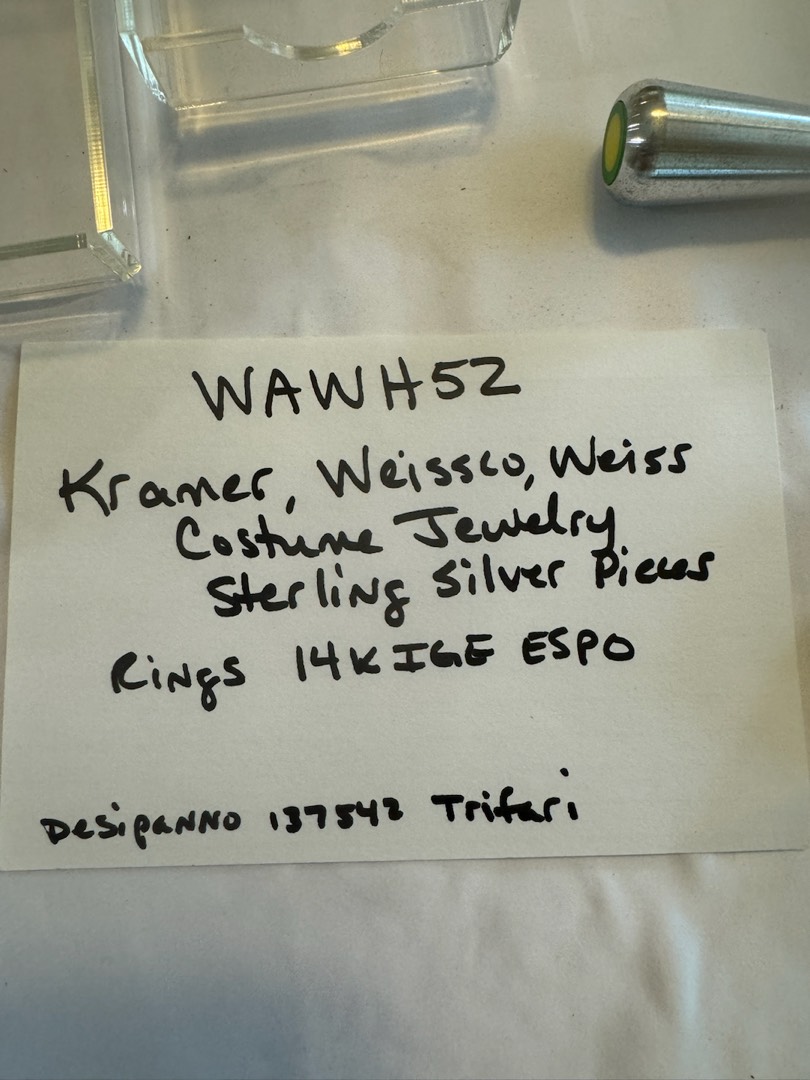 WAWH52
Kramer, Weissco, Weiss
Costume Jewelry
Sterling Silver Pieces
Rings 14K IGE ESPO
DesipaNNo 137542 Trifari